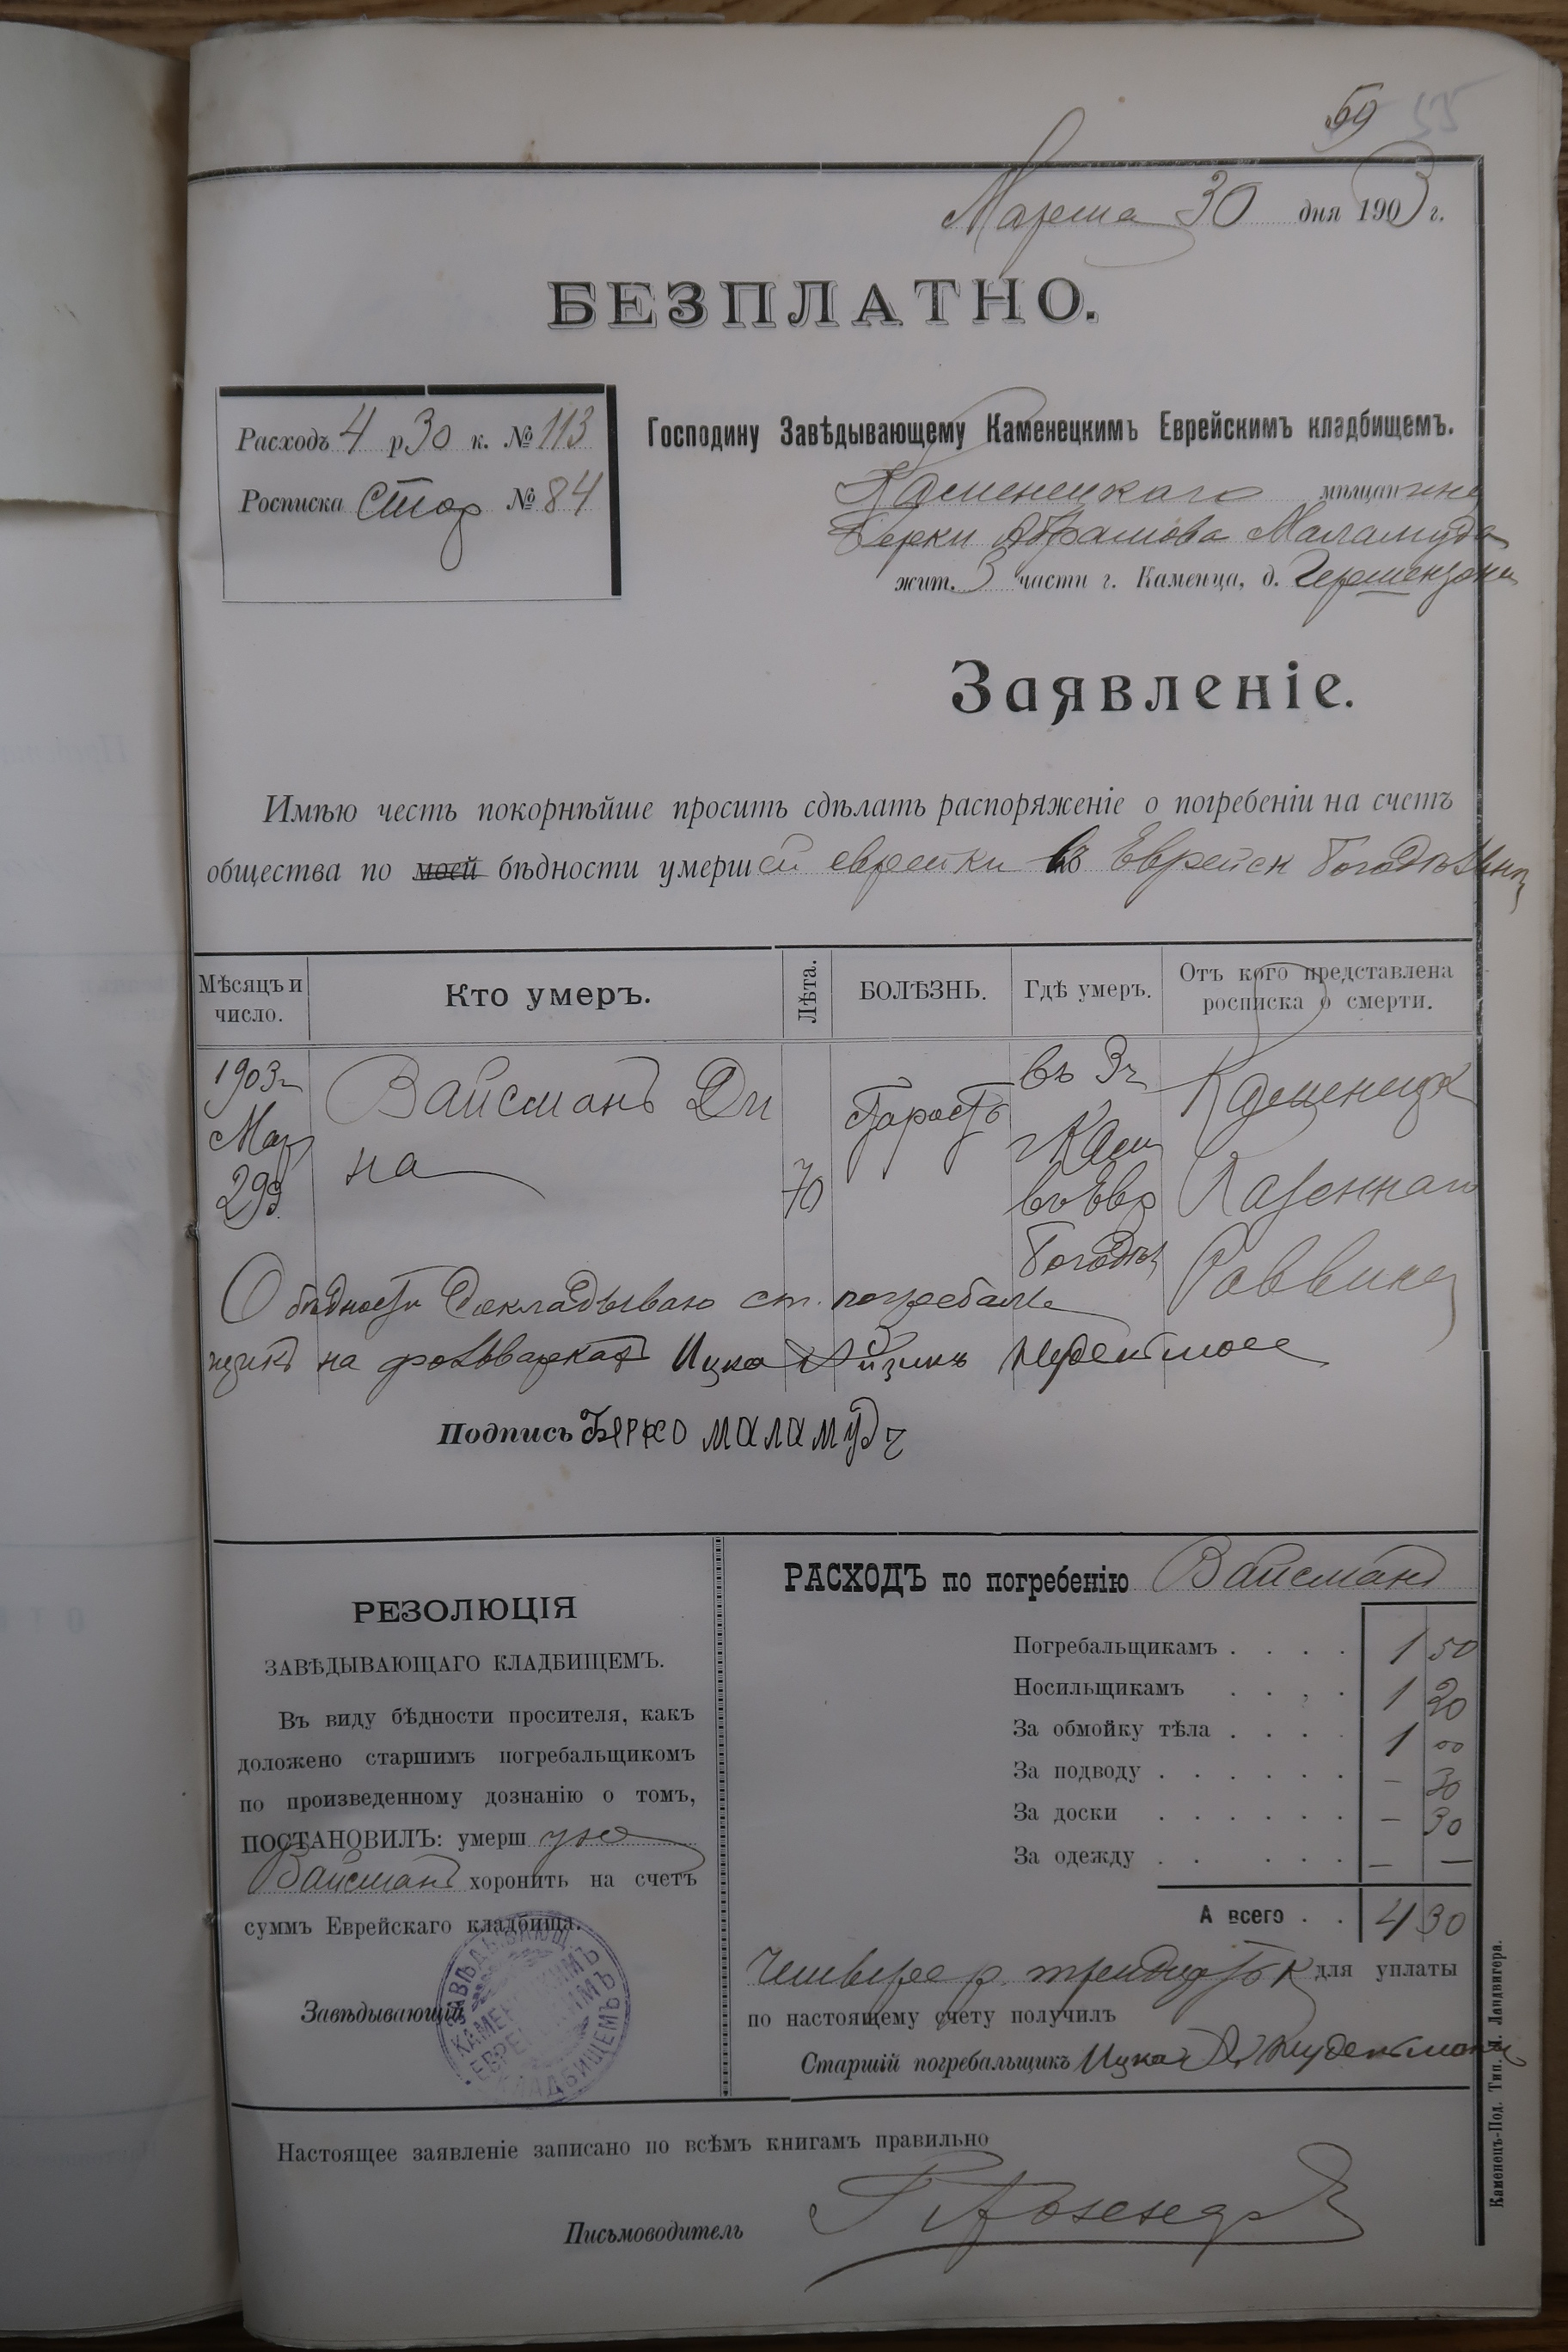 59 55
Марта 30 дня 1903 г.
БЕЗПЛАТНО.
Расходъ 4 р 30 к. № 113
Росписка стар № 84
Господину Завѣдывающему Каменецкимъ Еврейскимъ кладбищемъ.
Каменецкаго мѣщанина
Берки Абрамова Маламуда
жит. 3 части г. Каменца, д. Гершензона
Заявленіе.
Имѣю честь покорнѣйше просить сдѣлать распоряженіе о погребеніи на счетъ
общества по моей бѣдности умершей еврейки въ Еврейск Богодѣльни
Мѣсяцъ и число. Кто умеръ. Лѣта. БОЛѢЗНЬ. Гдѣ умеръ. Отъ кого представлена росписка о смерти.
1903 г Вайсманъ Ди въ 3 ч Каменецк
Мар на 70 старость г Кам Казеннаго
29 въ Евр Раввина
Богодѣл
О бѣдности докладываю ст. погребаль
щикъ на фольваркахъ Ицко Айзикъ
Подпись Берко маламудъ
РЕЗОЛЮЦІЯ
ЗАВѢДЫВАЮЩАГО КЛАДБИЩЕМЪ.
Въ виду бѣдности просителя, какъ
доложено старшимъ погребальщикомъ
по произведенному дознанію о томъ,
ПОСТАНОВИЛЪ: умерш ую
Вайсманъ хоронить на счетъ
суммъ Еврейскаго кладбища.
Завѣдывающій
ЗАВѢДЫВАЮЩ. КАМЕНЕЦКИМЪ ЕВРЕЙСКИМЪ КЛАДБИЩЕМЪ
РАСХОДЪ по погребенію Вайсманъ
Погребальщикамъ . . . . 1 50
Носильщикамъ . . . . 1 20
За обмойку тѣла . . . . 1 00
За подводу . . . . . . – 30
За доски . . . . . . – 30
За одежду . . . . . . – –
А всего . . 4 30
Четыре р. тридцать к для уплаты
по настоящему счету получилъ
Старшій погребальщикъ Ицко А
Настоящее заявленіе записано по всѣмъ книгамъ правильно
Письмоводитель
Каменецъ-Под. Тип. Ландвигера.